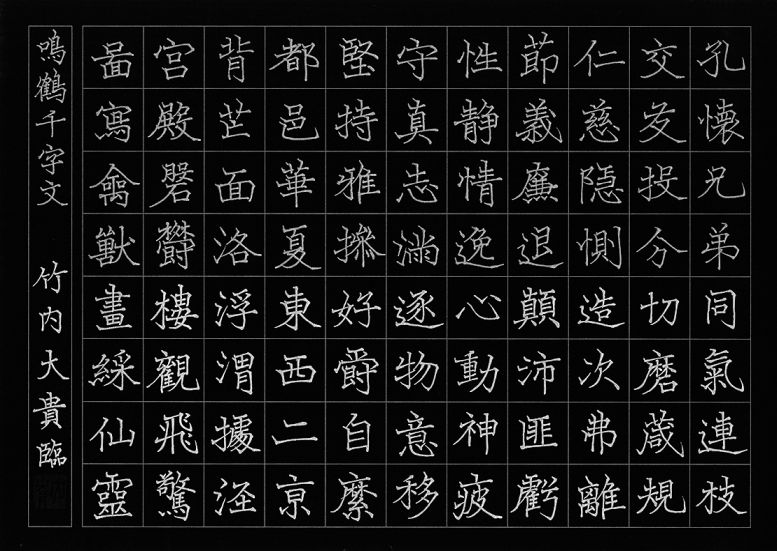 孔懐兄弟同氣連枝
交友投分切磨箴規
仁慈隠惻造次弗離
節義廉退顛沛匪虧
性静情逸心動神疲
守真志満逐物意移
堅持雅操好爵自縻
都邑華夏東西二亰
背芒面洛浮渭據涇
宮殿磐鬱樓觀飛驚
啚寫禽獸畫綵仙靈
鳴鶴千字文 竹内大貴臨